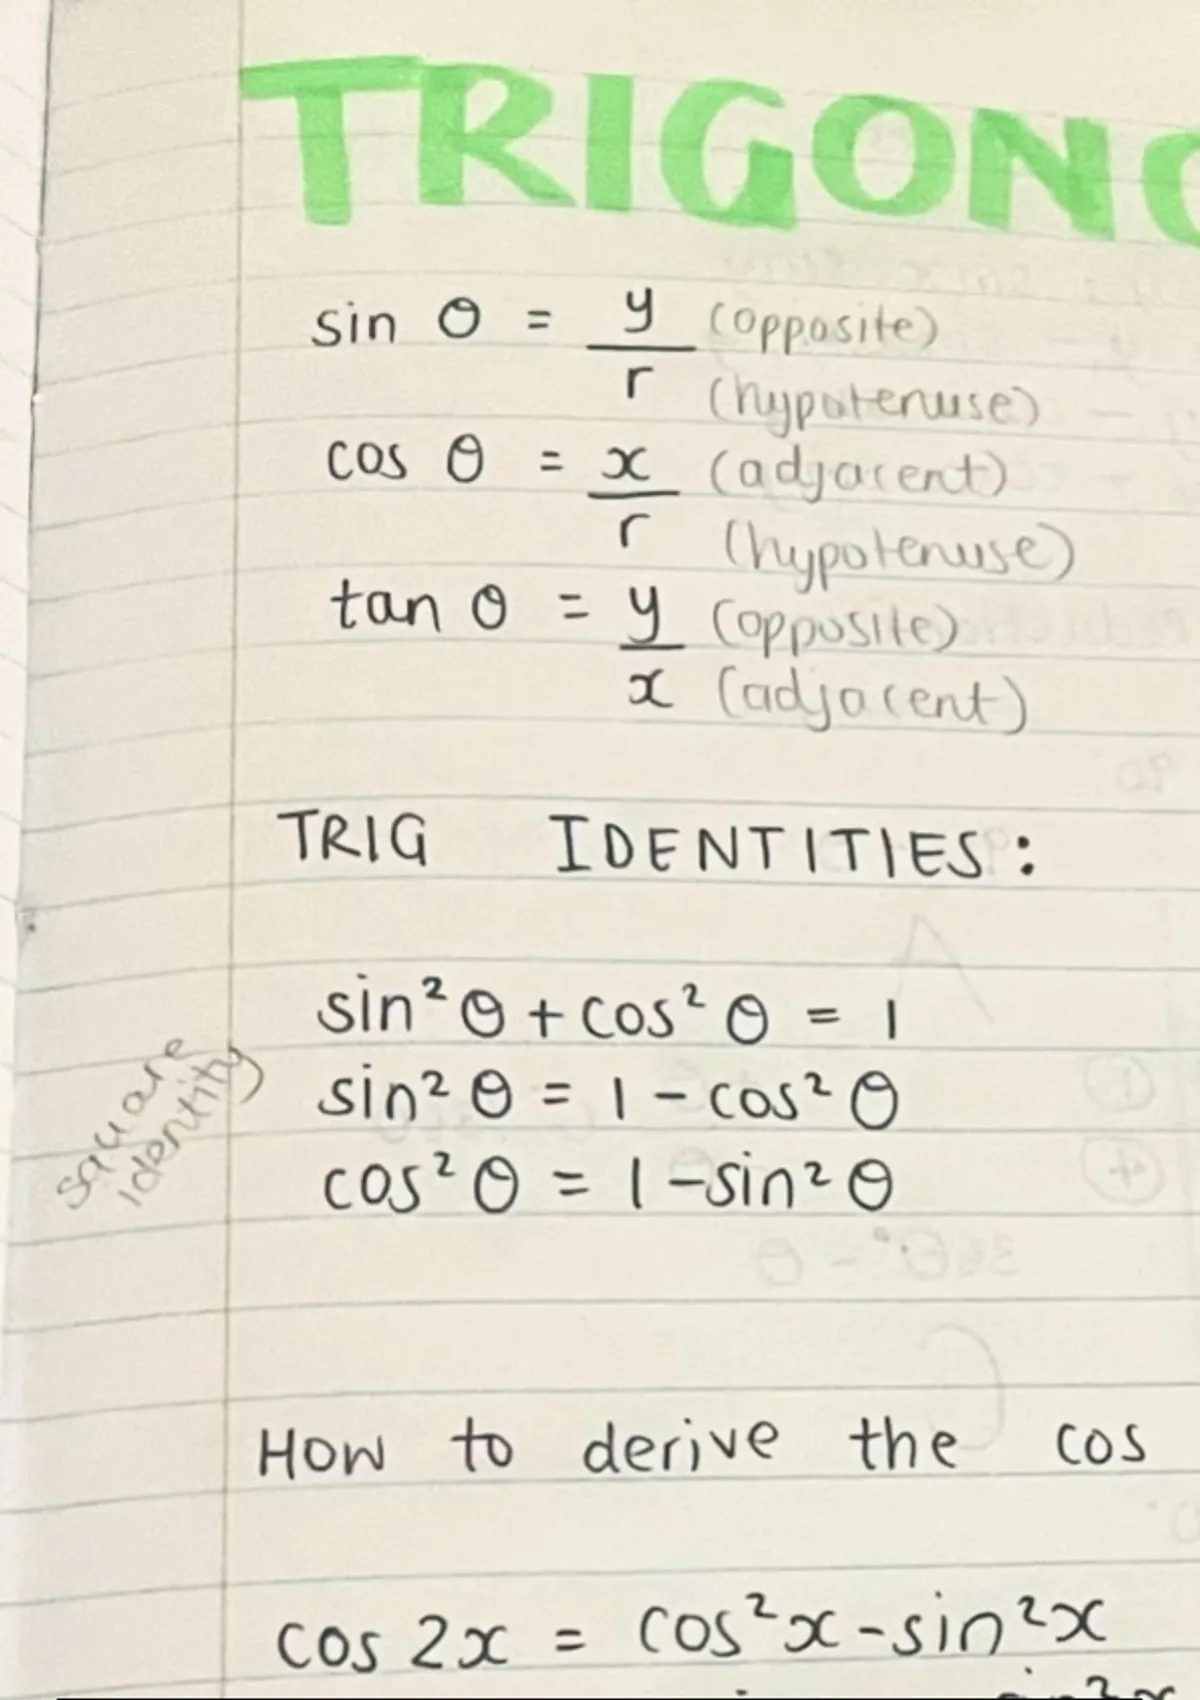 TRIGONO
sin θ = y (opposite)
r (hypotenuse)
cos θ = x (adjacent)
r (hypotenuse)
tan θ = y (opposite)
x (adjacent)
TRIG IDENTITIES:
sin²θ + cos²θ = 1
square
identity
sin²θ = 1 - cos²θ
cos²θ = 1 - sin²θ
How to derive the cos
cos 2x = cos²x - sin²x